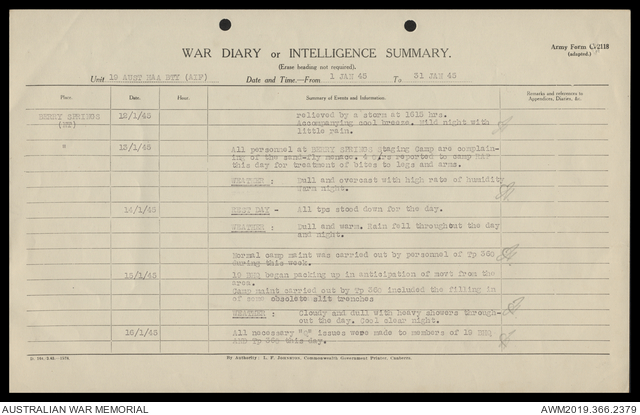 WAR DIARY or INTELLIGENCE SUMMARY.
Army Form C 2118
(adapted.)
(Erase heading not required).
Unit 19 AUST HAA BTY (AIF) Date and Time.—From 1 JAN 45 To 31 JAN 45
Place. Date. Hour. Summary of Events and Information. Remarks and references to Appendices, Diaries, &c.
BERRY SPRINGS (NT) 12/1/45 relieved by a storm at 1815 hrs.
Accompanying cool breeze. Mild night with
little rain.
" 13/1/45 All personnel at BERRY SPRINGS Staging Camp are complain-
ing of the sand-fly menace. reported to camp RAP
this day for treatment of bites to legs and arms.
WEATHER : Dull and overcast with high rate of humidity
Warm night.
14/1/45 REST DAY - All tps stood down for the day.
WEATHER : Dull and warm. Rain fell throughout the day
and night.
Normal camp maint was carried out by personnel of Tp 365
during this week.
15/1/45 19 BHQ began packing up in anticipation of movt from the
area.
Camp maint carried out by Tp 365 included the filling in
of some obsolete slit trenches
WEATHER : Cloudy and dull with heavy showers through-
out the day. Cool clear night.
16/1/45 All necessary "Q" issues were made to members of 19 BHQ
AND Tp 365 this day.
By Authority: L. F. Johnston, Commonwealth Government Printer, Canberra.
AUSTRALIAN WAR MEMORIAL
AWM2019.366.2379